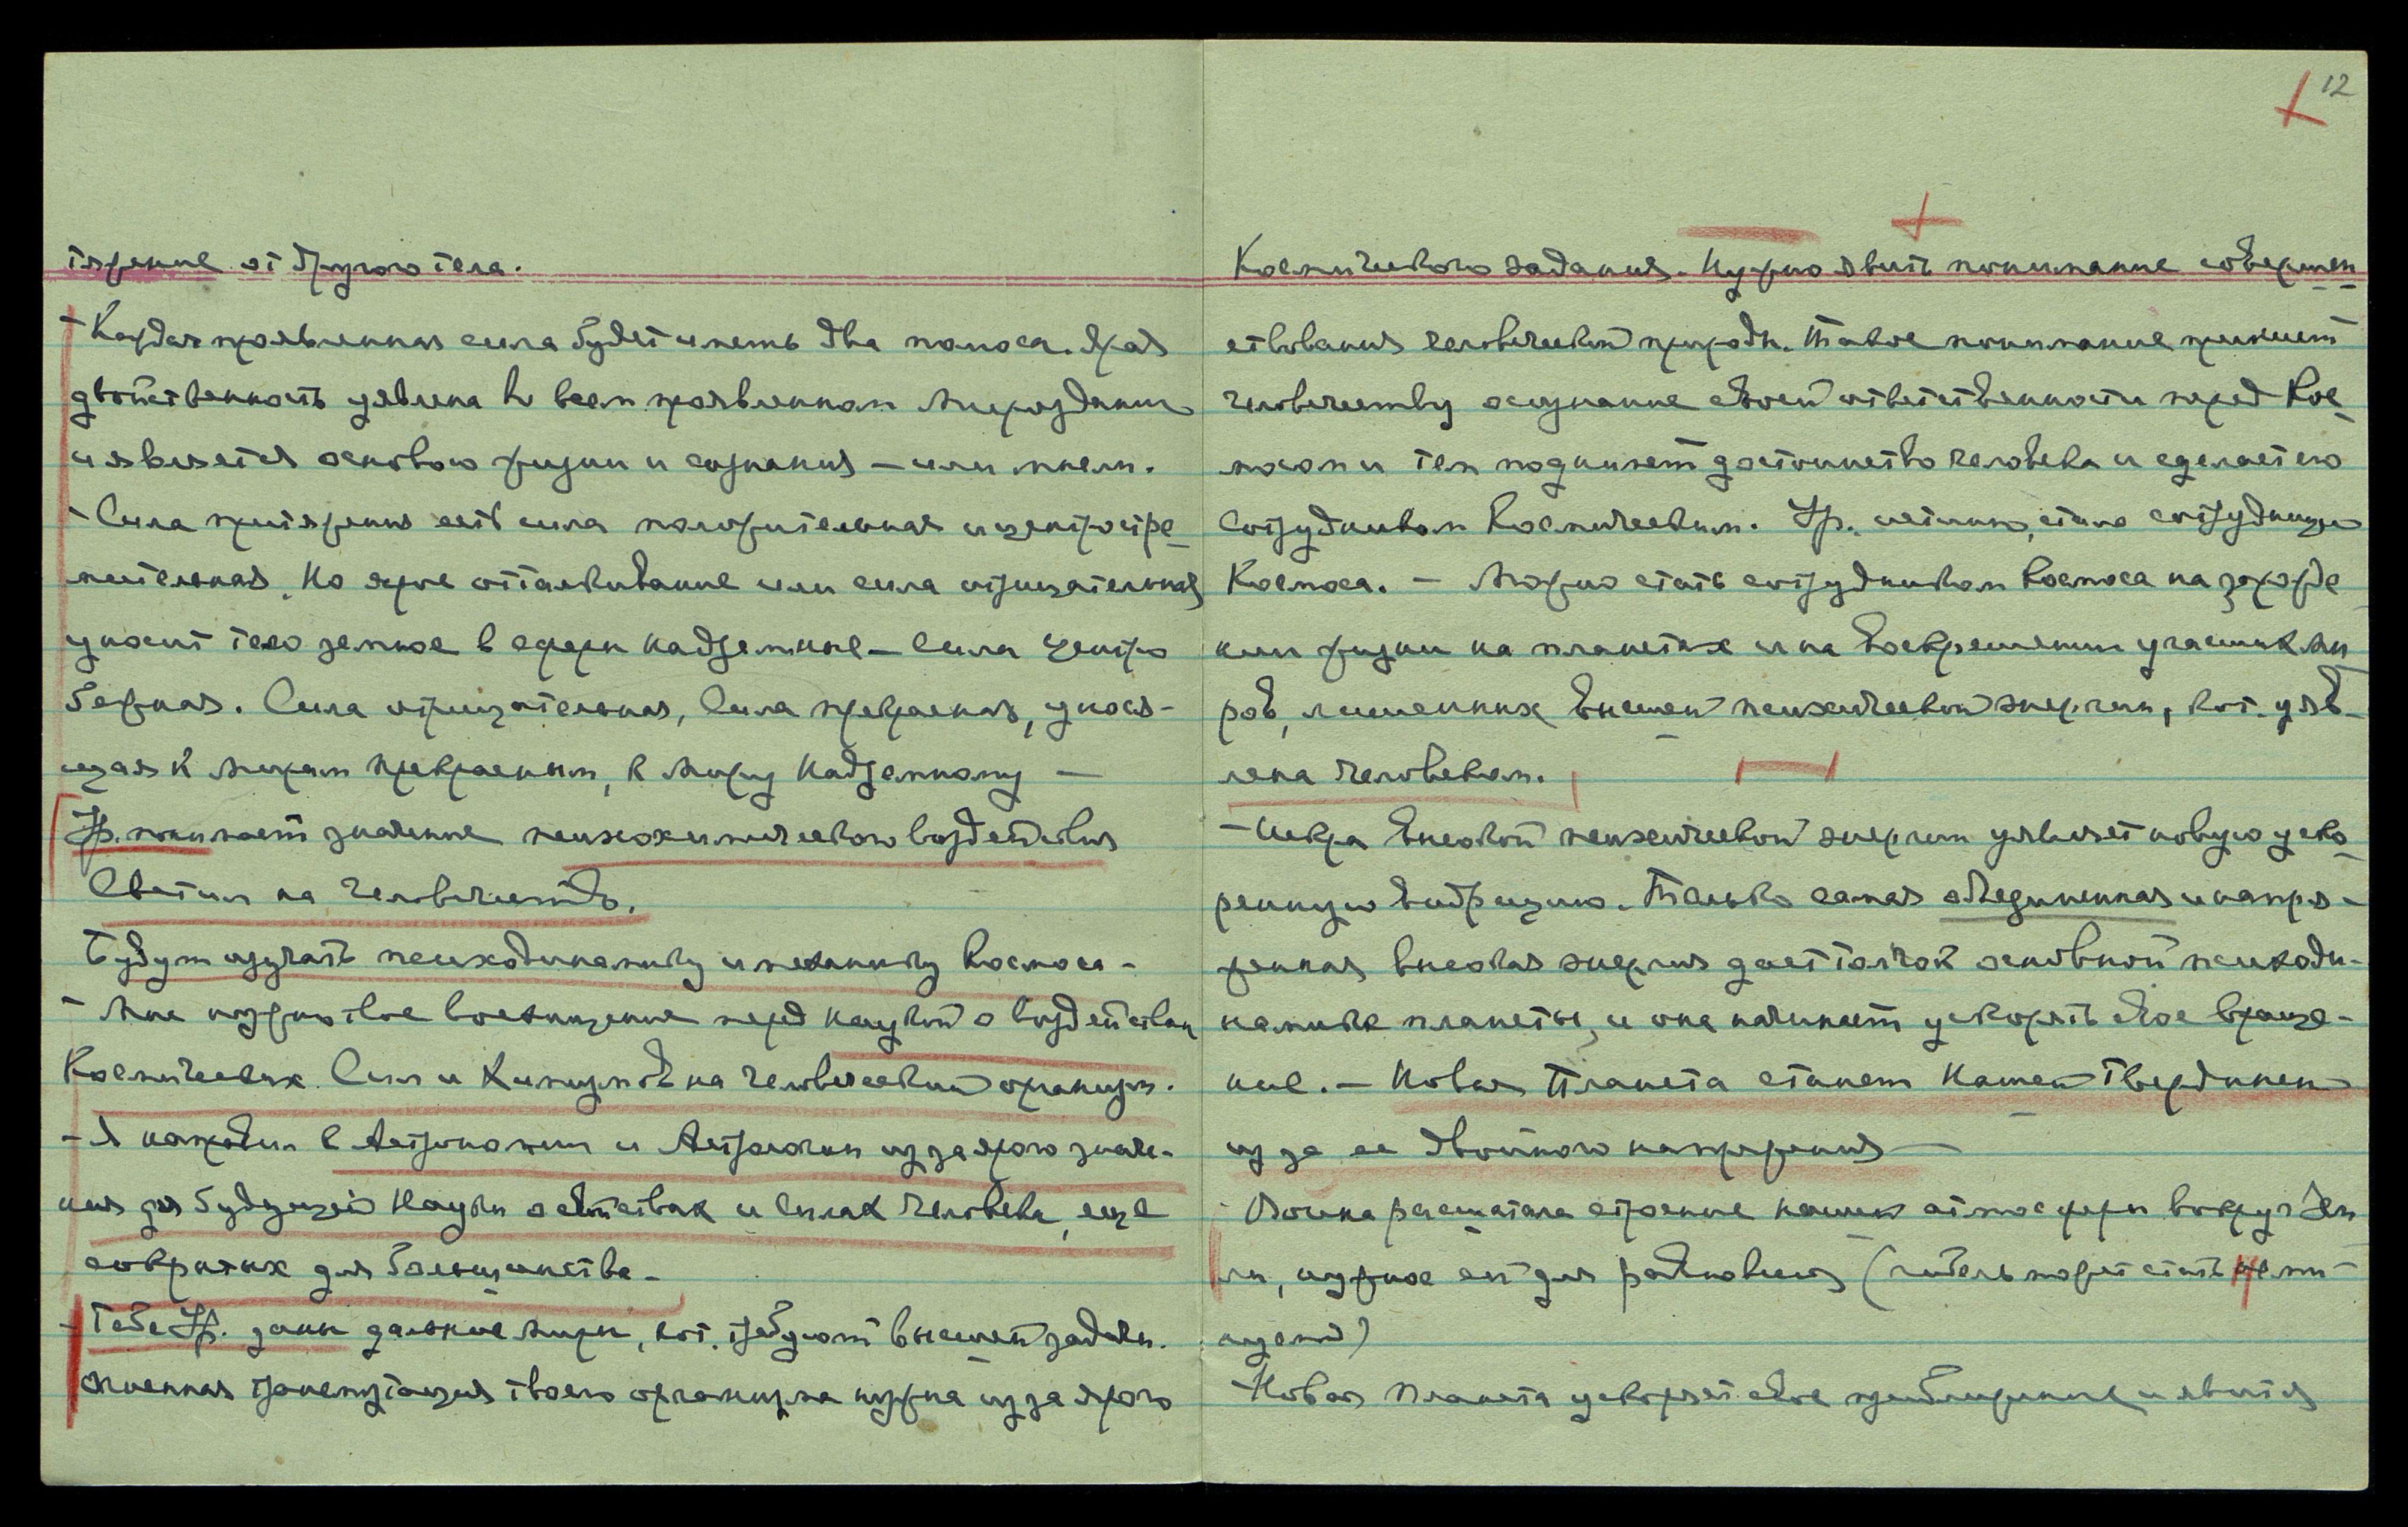 тяжение от другого тела.
- Каждая проявленная сила будет иметь два полюса. Ярая
двойственность уявлена во всем проявленном Мироздании
и является основою жизни и сознания — или мысли.
- Сила притяжения есть сила положительная и центростре-
мительная. Но ярое отталкивание или сила отрицательная
уносит тело земное в сферы надземные — Сила центро
бежная. Сила отрицательная, Сила прекрасная, унося-
щая к мирам прекрасным, к Миру Надземному —
Ур. понимает значение психохимического воздействия
Светил на человечество.
Будут изучать психодинамику и механику Космоса -
- Мне нужно твое восхищение перед наукой о воздействии
Космических Сил и Химизмов на человеческий организм.
- Я нахожу в Астрономии и Астрологии из за ярого значе-
ния для будущей Науки о свойствах и силах человека, еще
сокрытых для большинства -
- Тебе Ур. даны дальние миры, кот. требуют высшей задачи.
Огненная трансмутация твоего организма нужна из за ярого
12
Космического задания. Нужно явить понимание совершен-
ствования человеческой природы. Такое понимание принесет
человечеству осознание своей ответственности перед Кос-
мосом и тем поднимет достоинство человека и сделает его
Сотрудником Космическим. Ур. истинно, стала сотрудницею
Космоса. — Можно стать сотрудником Космоса на зарожде
нии жизни на планетах и на воскрешении угасших ми
ров, лишенных высшей психической энергии, кот. уяв-
лена человеком.
- Искра высокой психической энергии уявляет новую уско-
ренную вибрацию. Только самая объединенная и напря-
женная высокая энергия дает толчок основной психоди-
намике планеты, и она начинает ускорять свое враще-
ние. — Новая Планета станет Нашей Твердыней
из за ее двойного напряжения —
- Война расшатала строение нашей атмосферы вокруг Зем
ли, нужное ей для равновесия (гибель может стать неми-
нуемой)
- Новая Планета ускоряет свое приближение и явится